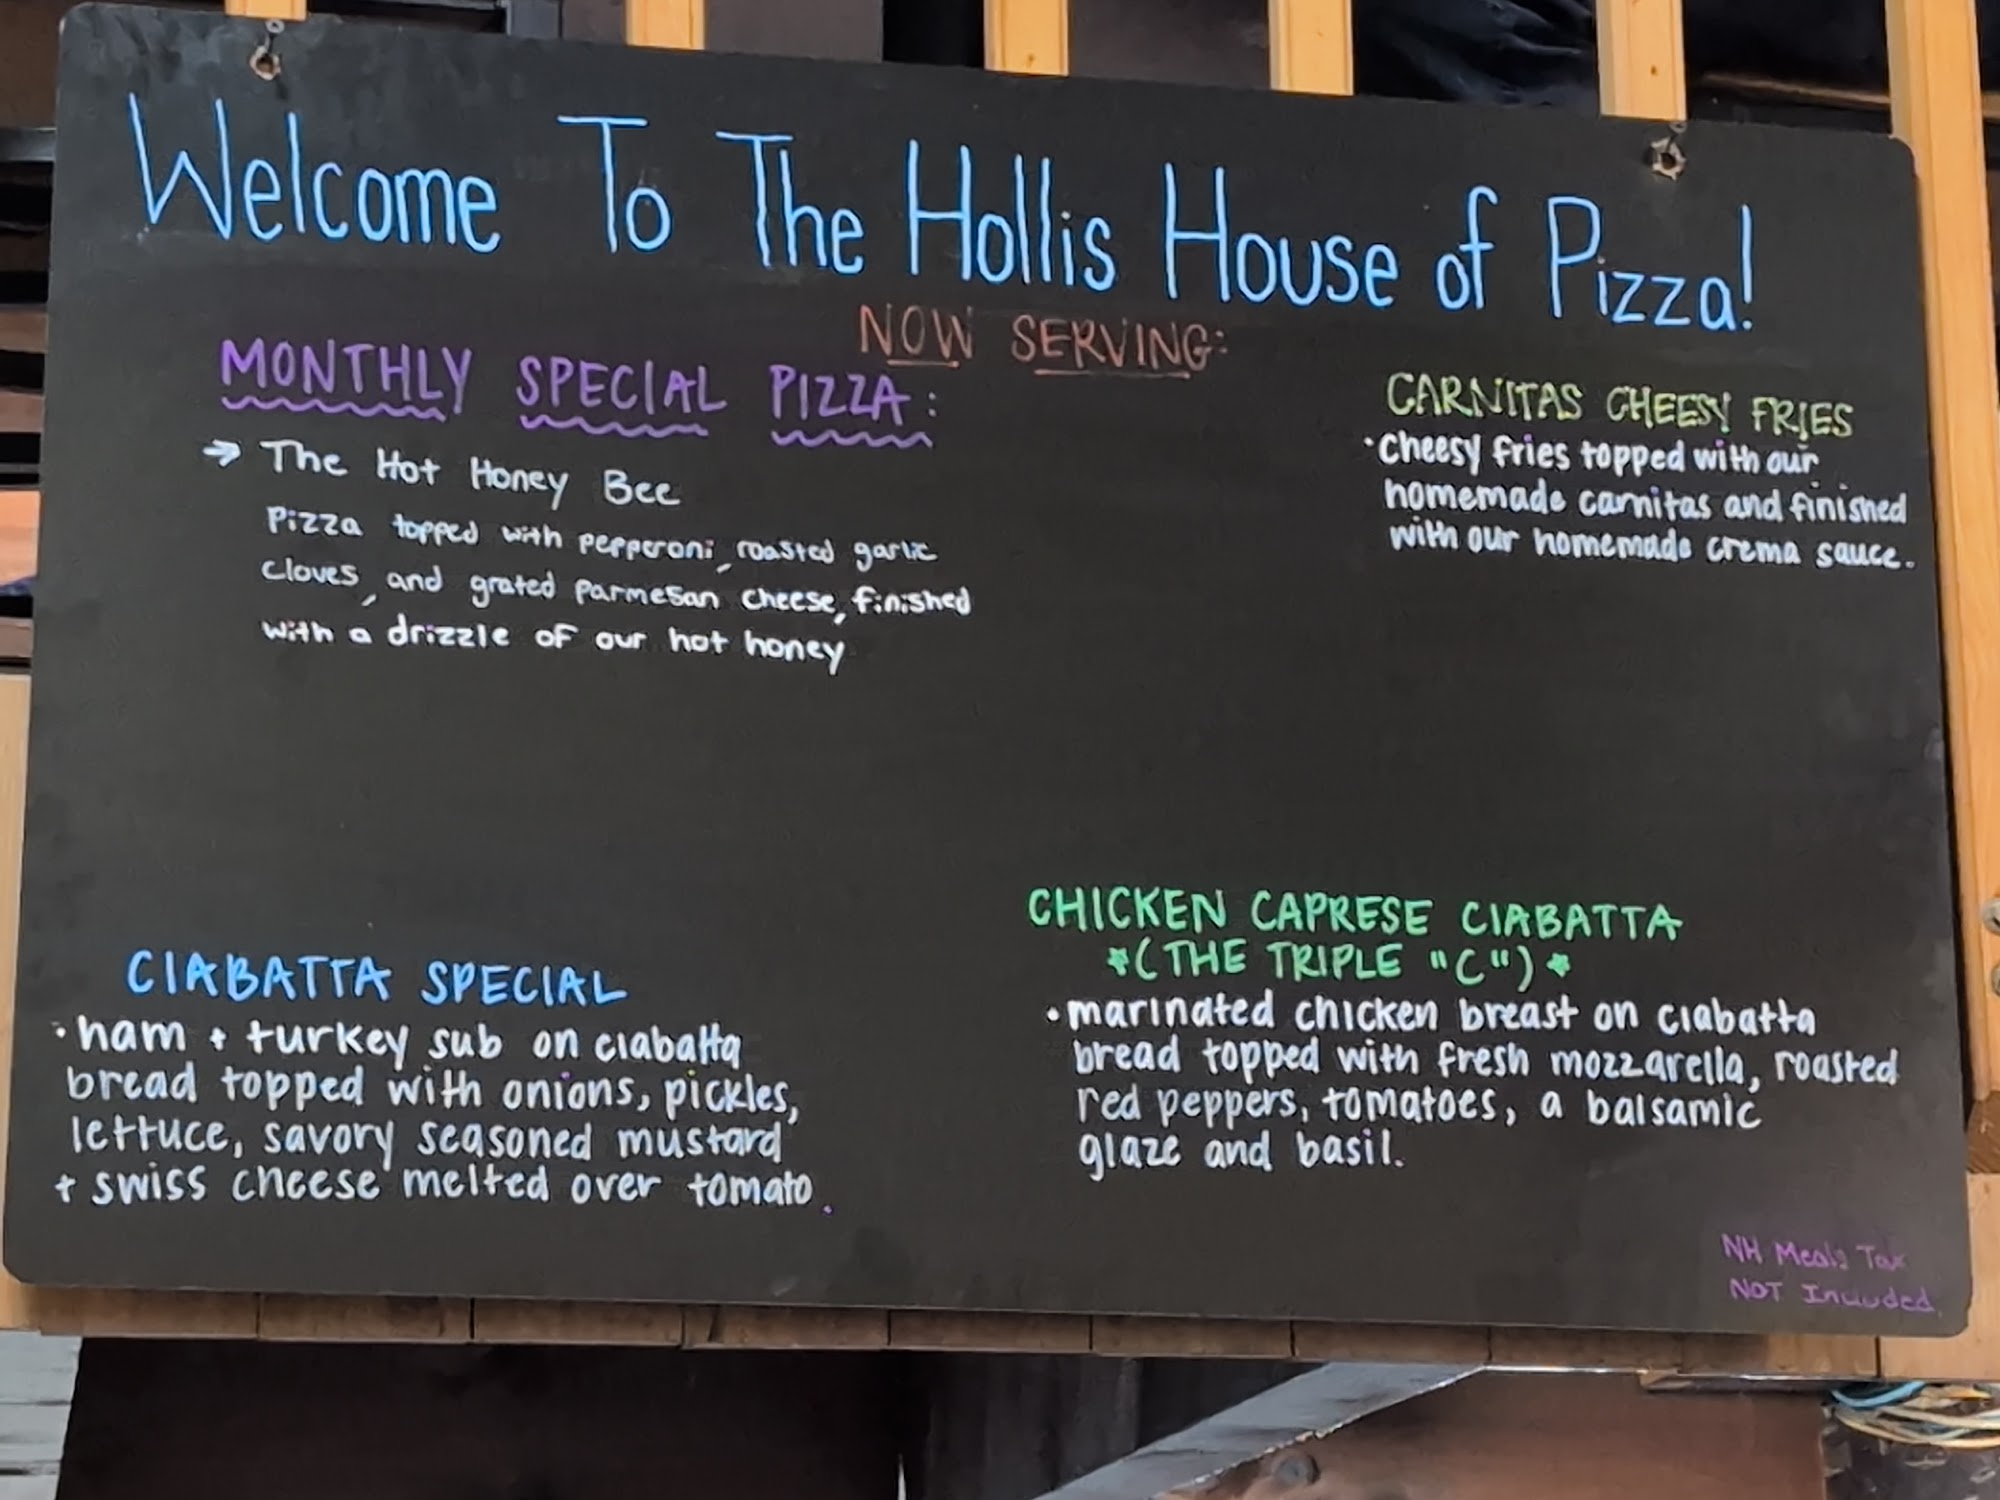 Welcome To The Hollis House of Pizza!
NOW SERVING:
MONTHLY SPECIAL PIZZA:
→ The Hot Honey Bee
Pizza topped with pepperoni, roasted garlic
cloves, and grated parmesan cheese, finished
with a drizzle of our hot honey
CARNITAS CHEESY FRIES
• cheesy fries topped with our
homemade carnitas and finished
with our homemade crema sauce.
CIABATTA SPECIAL
• ham + turkey sub on ciabatta
bread topped with onions, pickles,
lettuce, savory seasoned mustard
+ swiss cheese melted over tomato.
CHICKEN CAPRESE CIABATTA
*(THE TRIPLE "C")*
• marinated chicken breast on ciabatta
bread topped with fresh mozzarella, roasted
red peppers, tomatoes, a balsamic
glaze and basil.
NH Meals Tax
NOT Included.